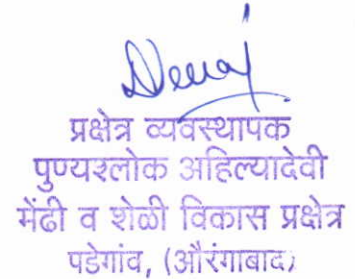 प्रक्षेत्र व्यवस्थापक
पुण्यश्लोक अहिल्यादेवी
मेंढी व शेळी विकास प्रक्षेत्र
पडेगांव, (औरंगाबाद)